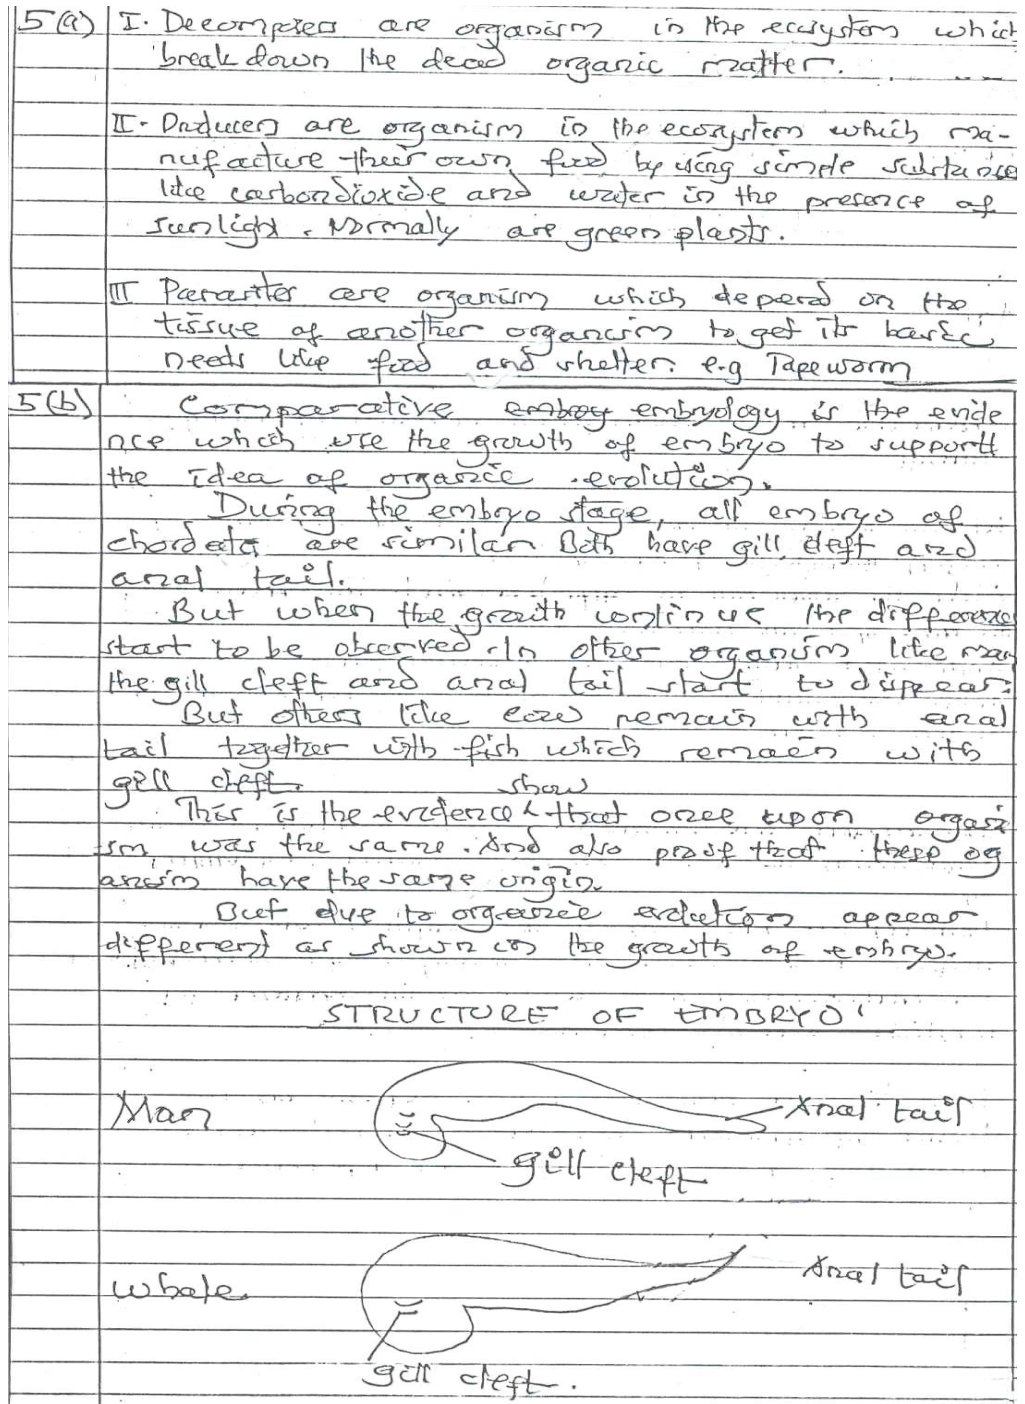 5(a) I. Decomposers are organism in the ecosystem which
break down the dead organic matter.
II. Producers are organism in the ecosystem which ma-
nufacture their own food by using simple substance
like carbondioxide and water in the presence of
sunlight. Normally are green plants.
III Parasites are organism which depend on the
tissue of another organism to get its basic
needs like food and shelter. e.g Tapeworm
5(b) Comparative embryology is the evide
nce which use the growth of embryo to support
the idea of organic evolution.
During the embryo stage, all embryo of
chordata are similar. Both have gill cleft and
anal tail.
But when the growth continue the difference
start to be observed. In other organism like man
the gill cleft and anal tail start to disppear.
But others like cow remain with anal
tail together with fish which remain with
gill cleft.
This is the evidence show that once upon organi
sm was the same. And also proof that these og
anism have the same origin.
But due to organic evolution appear
different as shown in the growth of embryo.
STRUCTURE OF EMBRYO
Man
Anal tail
gill cleft
Whale
Anal tail
gill cleft.